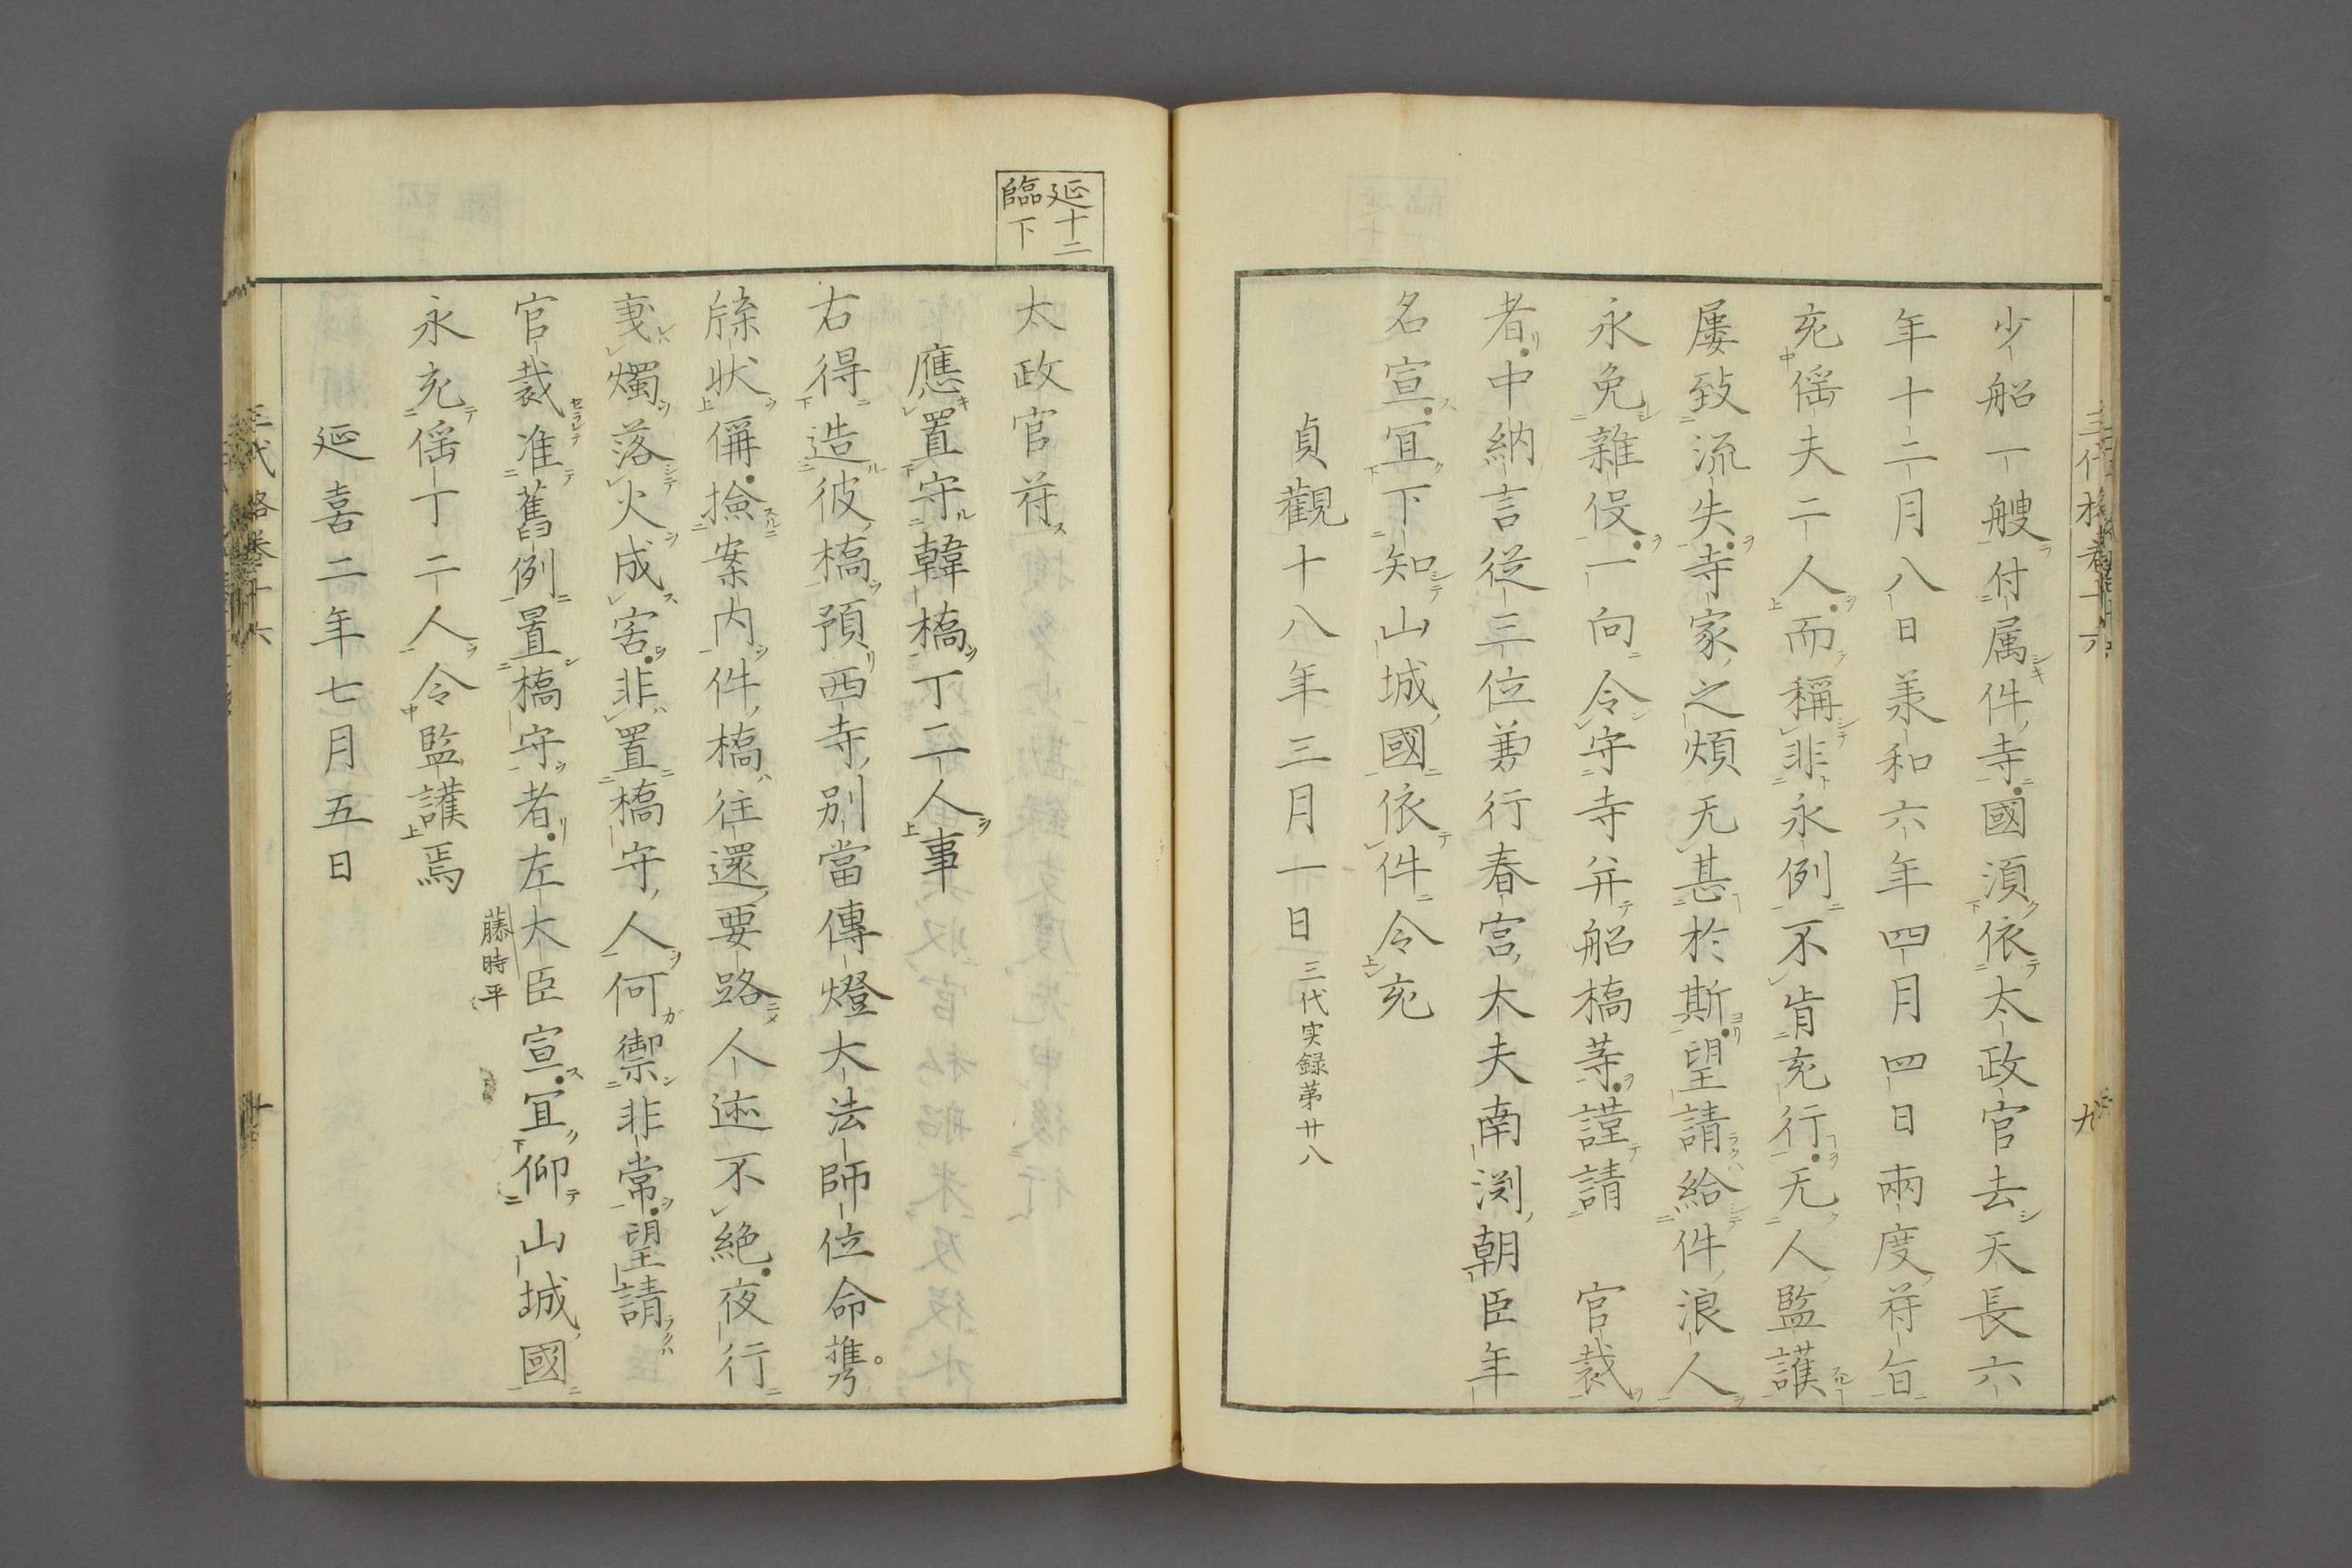 少船一艘付属件寺國湏依太政官去天長六
年十二月八日羕和六年四月四日兩度符旨
充傜夫二人而稱非永例不肯充行无人監護
屢致流失寺家之煩无甚於斯望請給件浪人
永免雜伇一向令守寺并船橋等謹請　官裁
者中納言從三位兼行春宮大夫南渕朝臣年
名宣冝下知山城國依件令充
貞觀十八年三月一日三代実録苐廿八
延十二
臨下
太政官符
應置守韓橋丁二人事
右得造彼橋預西寺別當傳燈大法師位命㩦
牒状偁撿案内件橋往還要路人迹不絶夜行
曳燭落火成害非置橋守人何禦非常望請
官裁准舊例置橋守者左大臣宣冝仰山城國
藤時平
永充傜丁二人令監護焉
延喜二年七月五日
三代格卷十六